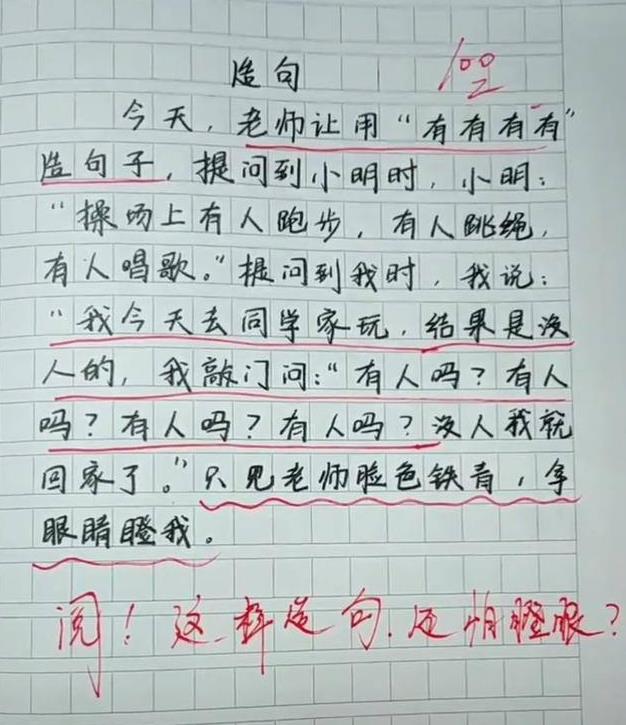 造句
100
今天，老师让用“有有有有”
造句子，提问到小明时，小明：
“操场上有人跑步，有人跳绳，
有人唱歌。”提问到我时，我说：
“我今天去同学家玩，结果是没
人的，我敲门问：“有人吗？有人
吗？有人吗？有人吗？没人我就
回家了。”只见老师脸色铁青，拿
眼睛瞪我。
阅！这样造句，还怕瞪眼？